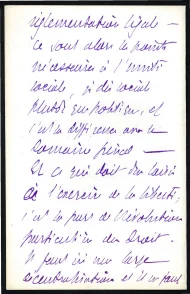 réglementation légale —
ce sont alors les points
nécessaires à l'unité
sociale, si dis social
plutôt que politique, et
c'est la différence avec le
Domaine pénal —
Et ce qui doit être laissé
à l'exercice de la liberté,
c'est la part de l'évolution
particulière du Droit.
Il faut ici une large
décentralisation et il ne faut